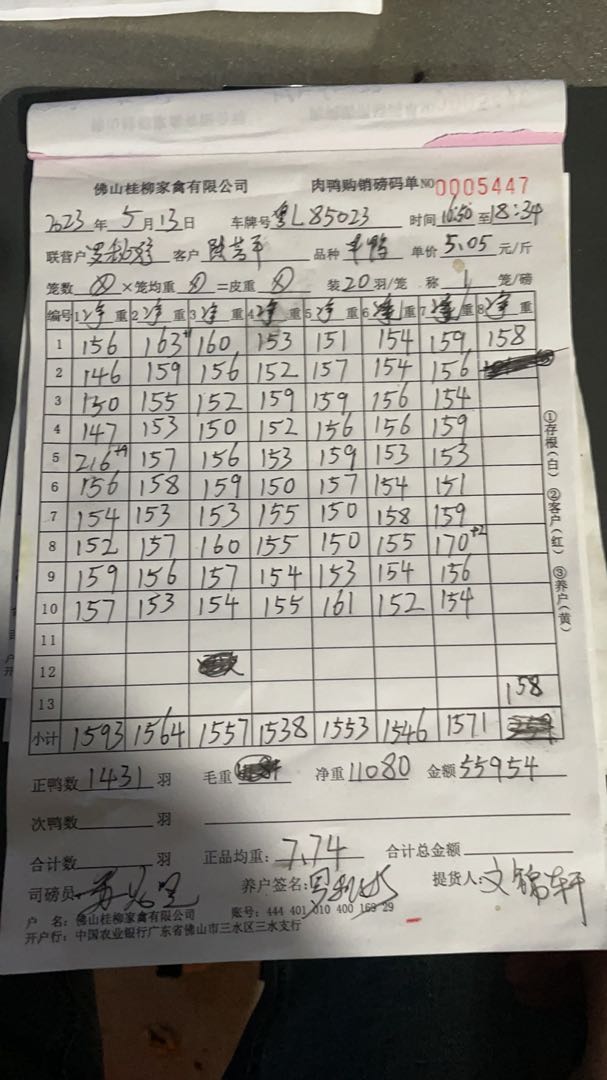 佛山桂柳家禽有限公司 肉鸭购销磅码单 NO 0005447
2023 年 5 月 13 日 车牌号 粤L85023 时间 16:50 至 18:34
联营户 客户 品种 单价 5.05 元/斤
笼数 × 笼均重 = 皮重 装 20 羽/笼 称 1 笼/磅
编号 1 净 重 2 净 重 3 净 重 4 净 重 5 净 重 6 净 重 7 净 重 8 净 重
1 156 163+1 160 153 151 154 159 158
2 146 159 156 152 157 154 156
3 150 155 152 159 159 156 154
4 147 153 150 152 156 156 159
5 216+9 157 156 153 159 153 153
6 156 158 159 150 157 154 151
7 154 153 153 155 150 158 159
8 152 157 160 155 150 155 170+2
9 159 156 157 154 153 154 156
10 157 153 154 155 161 152 154
11
12
13 158
小计 1593 1564 1557 1538 1553 1546 1571
①存根(白) ②客户(红) ③养户(黄)
正鸭数 1431 羽 毛重 净重 11080 金额 55954
次鸭数 羽
合计数 羽 正品均重: 7.74 合计总金额
司磅员 养户签名: 提货人: 文锦轩
户 名: 佛山桂柳家禽有限公司 账号: 444 401 010 400 169 29
开户行: 中国农业银行广东省佛山市三水区三水支行